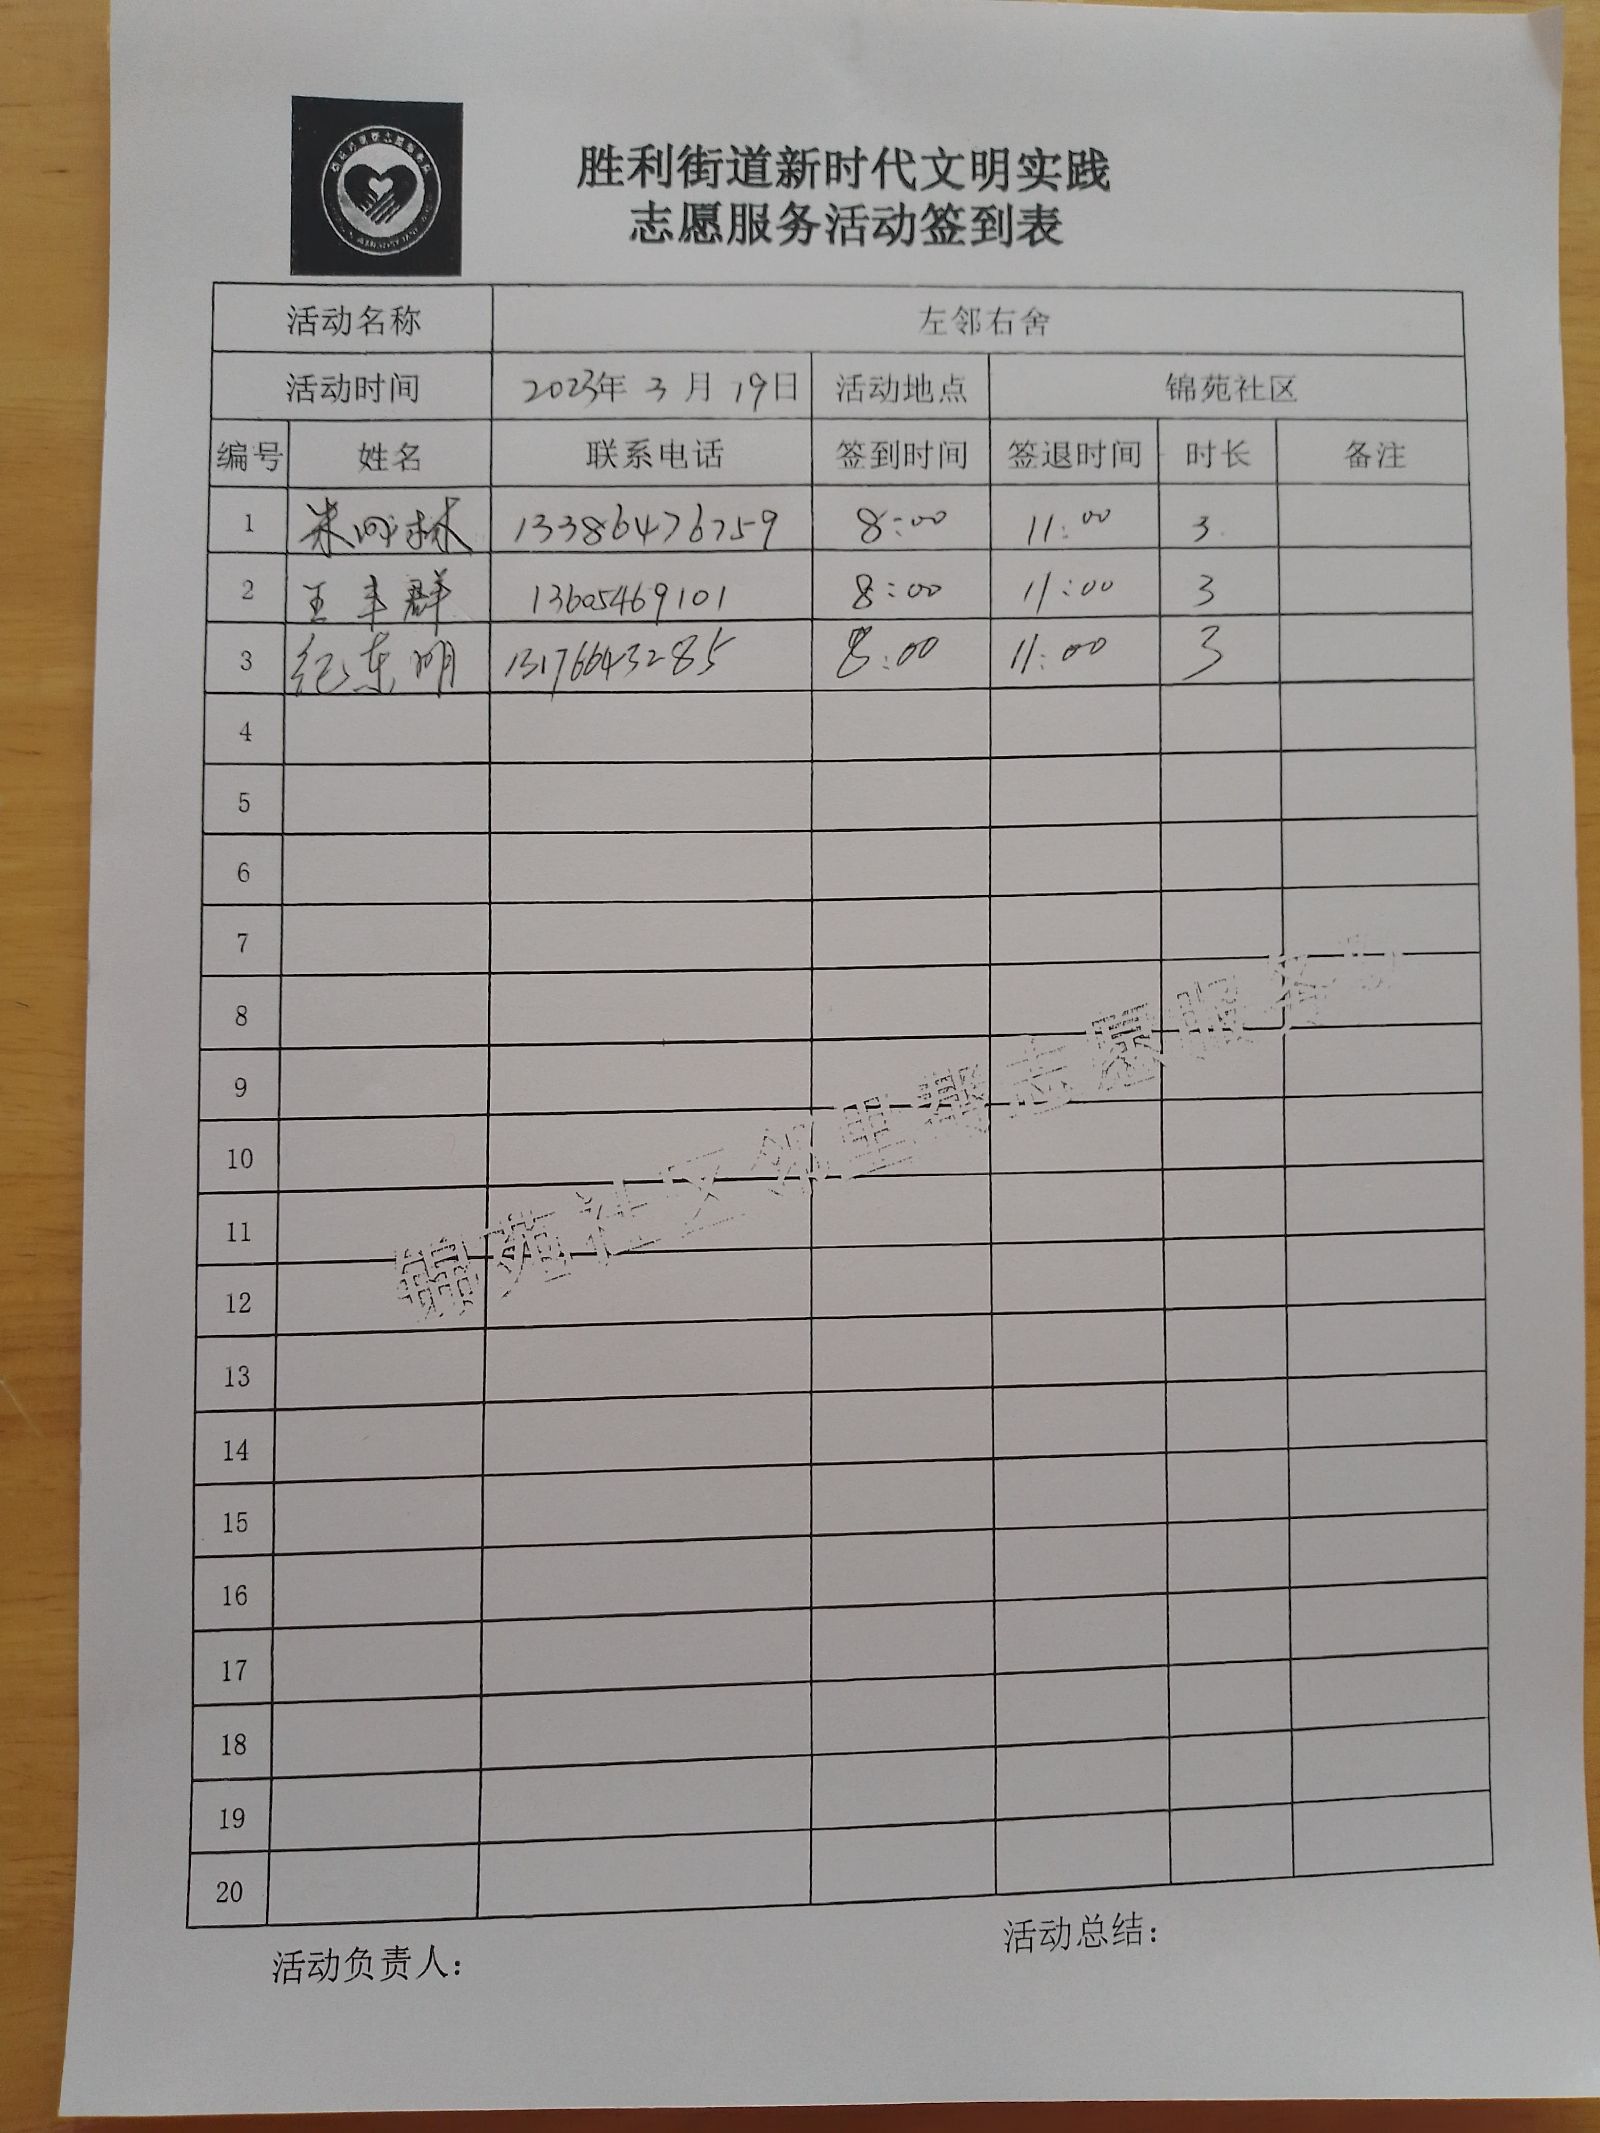 胜利街道新时代文明实践
志愿服务活动签到表
活动名称 左邻右舍
活动时间 2023年 3 月 19日 活动地点 锦苑社区
编号 姓名 联系电话 签到时间 签退时间 时长 备注
1 林 13386476759 8:00 11:00 3
2 王丰群 13605469101 8:00 11:00 3
3 纪东明 13176643285 8:00 11:00 3
4
5
6
7
8
9
10
11
12
13
14
15
16
17
18
19
20
锦苑社区邻里帮志愿服务
活动负责人： 活动总结：